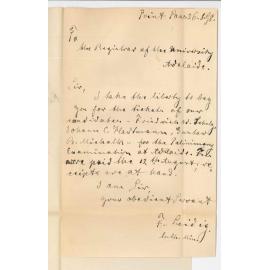 Point Pass 26. Sept.
To
the Registrar of the University
Adelaide.
Sir,
I take the liberty to beg
you for the tickets of our
candidates - Friedrich W.
Johann C. Hartmann, Gustav
B. Michalk - for the Preliminary
Examination at Adelaide.
were paid the 12 th August, re-
ceipts are at hand.
I am Sir,
your obedient Servant
F. Leidig